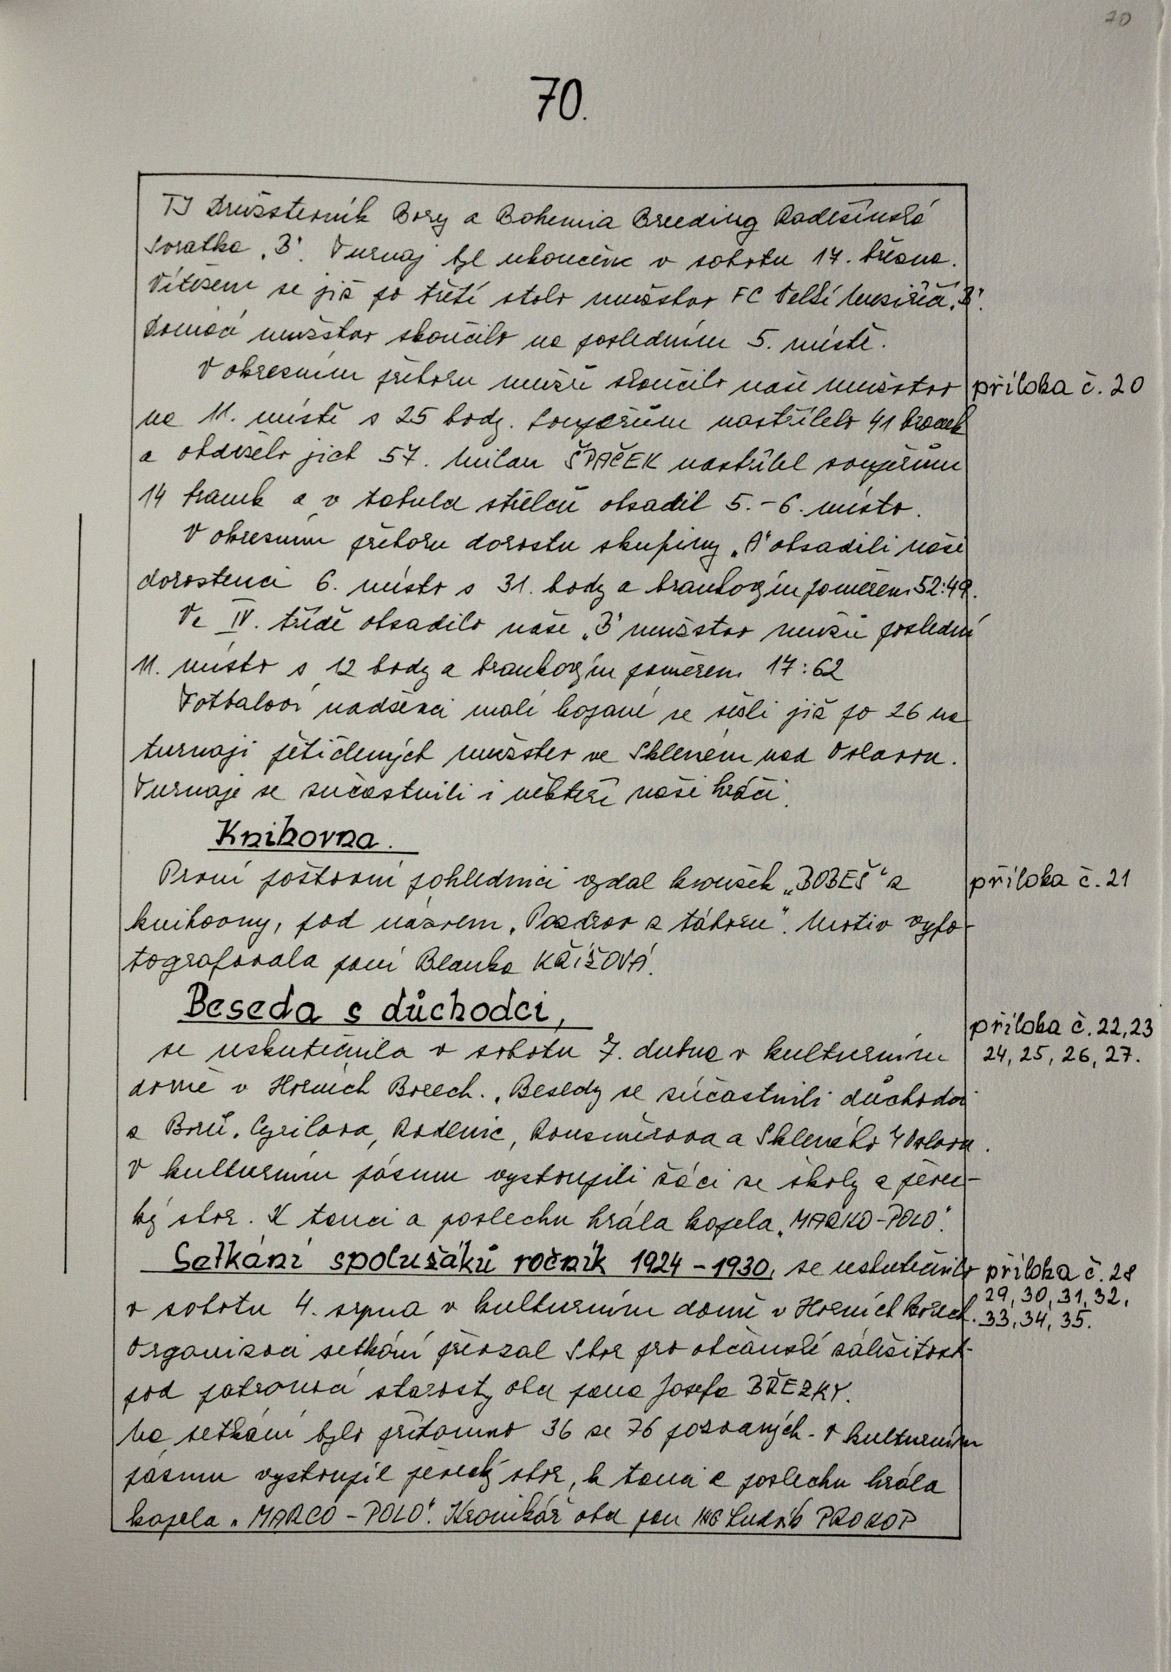 70
70.
TJ Družstevník Bory a Bohemia Breeding Radešínská
Svratka „B“. Turnaj byl ukončen v sobotu 17. března.
Vítězem se již po třetí stalo mužstvo FC Velké Meziříčí „B“.
Domácí mužstvo skončilo na posledním 5. místě.
V okresním přeboru mužů skončilo naše mužstvo
příloha č. 20
na 11. místě s 25 body. Soupeřům nastřílelo 41 branek
a obdrželo jich 57. Milan ŠPAČEK nastřílel soupeřům
14 branek a v tabulce střelců obsadil 5.-6. místo.
V okresním přeboru dorostu skupiny „A“ obsadili naši
dorostenci 6. místo s 31. body a brankovým poměrem 52:49.
Ve IV. třídě obsadilo naše „B“ mužstvo mužů poslední
11. místo s 12 body a brankovým poměrem 17:62
Fotbaloví nadšenci malé kopané se sešli již po 26 na
turnaji pětičlenných mužstev ve Skleném nad Oslavou.
Turnaje se zúčastnili i někteří naši hráči.
Knihovna.
První poštovní pohlednici vydal kroužek „BOBEŠ“ z
příloha č. 21
knihovny, pod názvem „Pozdrav z tábora“. Motiv vyfo-
tografovala paní Blanka KŘÍŽOVÁ.
Beseda s důchodci,
příloha č. 22, 23
24, 25, 26, 27.
se uskutečnila v sobotu 7. dubna v kulturním
domě v Horních Borech. Besedy se zúčastnili důchodci
z Borů, Cyrilova, Rodenic, Rousměrova a Skleného n/Oslavou.
V kulturním pásmu vystoupili žáci ze školy a pěvec-
ký sbor. K tanci a poslechu hrála kapela „MARKO-POLO“.
Setkání spolužáků ročník 1924-1930, se uskutečnilo
příloha č. 28
29, 30, 31, 32,
33, 34, 35.
v sobotu 4. srpna v kulturním domě v Horních Borech.
Organizaci setkání převzal Sbor pro občanské záležitosti
pod patronací starosty obce pana Josefa BŘEZKY.
Na setkání bylo přítomno 36 ze 76 pozvaných. V kulturním
pásmu vystoupil pěvecký sbor, k tanci a poslechu hrála
kapela „MARCO-POLO“. Kronikář obce pan Ludvík PROKOP